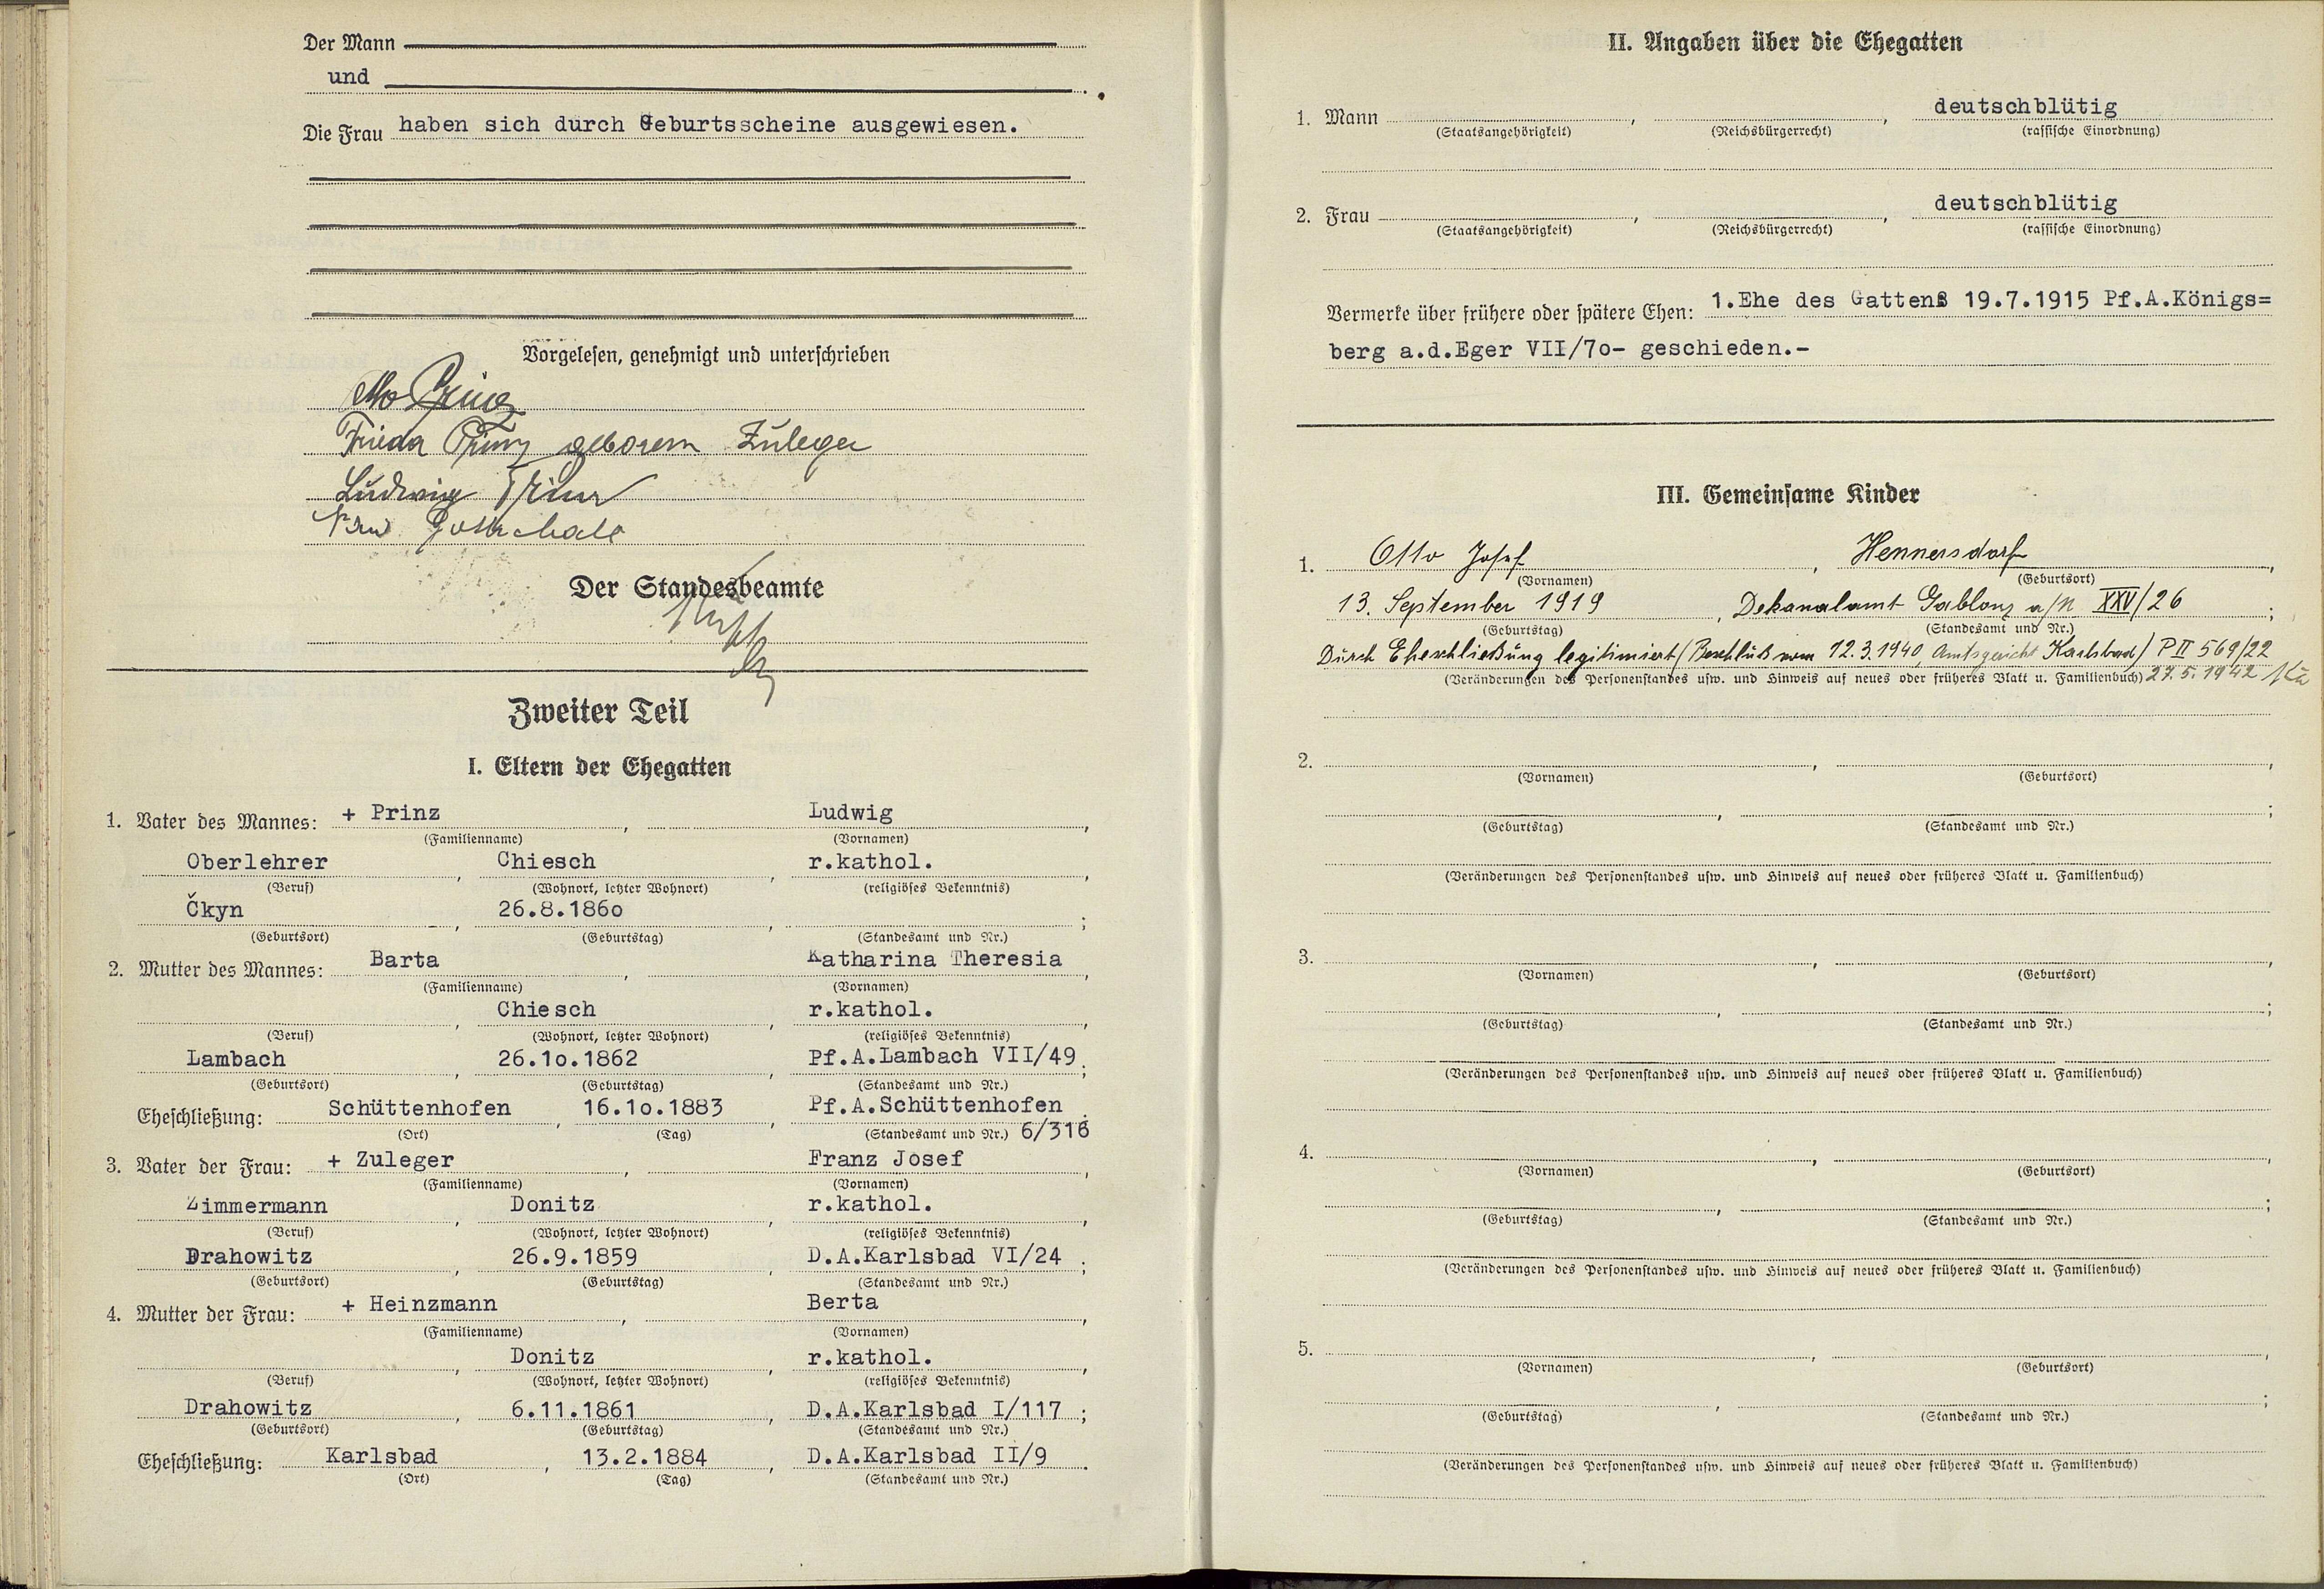 Der Mann
und
Die Frau haben sich durch Geburtsscheine ausgewiesen.
Vorgelesen, genehmigt und unterschrieben
Otto Prinz
Frieda Prinz geborene Zuleger
Ludwig Prinz
Der Standesbeamte
Zweiter Teil
I. Eltern der Ehegatten
1. Vater des Mannes: + Prinz , Ludwig ,
(Familienname) (Vornamen)
Oberlehrer , Chiesch , r.kathol. ,
(Beruf) (Wohnort, letzter Wohnort) (religiöses Bekenntnis)
Čkyn , 26.8.186o , ;
(Geburtsort) (Geburtstag) (Standesamt und Nr.)
2. Mutter des Mannes: Barta , Katharina Theresia ,
(Familienname) (Vornamen)
, Chiesch , r.kathol. ,
(Beruf) (Wohnort, letzter Wohnort) (religiöses Bekenntnis)
Lambach , 26.1o.1862 , Pf.A.Lambach VII/49 ;
(Geburtsort) (Geburtstag) (Standesamt und Nr.)
Eheschließung: Schüttenhofen , 16.1o.1883 , Pf.A.Schüttenhofen .
(Ort) (Tag) (Standesamt und Nr.) 6/316
3. Vater der Frau: + Zuleger , Franz Josef ,
(Familienname) (Vornamen)
Zimmermann , Donitz , r.kathol. ,
(Beruf) (Wohnort, letzter Wohnort) (religiöses Bekenntnis)
Drahowitz , 26.9.1859 , D.A.Karlsbad VI/24 ;
(Geburtsort) (Geburtstag) (Standesamt und Nr.)
4. Mutter der Frau: + Heinzmann , Berta ,
(Familienname) (Vornamen)
, Donitz , r.kathol. ,
(Beruf) (Wohnort, letzter Wohnort) (religiöses Bekenntnis)
Drahowitz , 6.11.1861 , D.A.Karlsbad I/117 ;
(Geburtsort) (Geburtstag) (Standesamt und Nr.)
Eheschließung: Karlsbad , 13.2.1884 , D.A.Karlsbad II/9 .
(Ort) (Tag) (Standesamt und Nr.)
II. Angaben über die Ehegatten
1. Mann , , deutschblütig
(Staatsangehörigkeit) (Reichsbürgerrecht) (rassische Einordnung)
2. Frau , , deutschblütig
(Staatsangehörigkeit) (Reichsbürgerrecht) (rassische Einordnung)
Vermerke über frühere oder spätere Ehen: 1.Ehe des Gattens 19.7.1915 Pf.A.Königs=
berg a.d.Eger VII/7o- geschieden.-
III. Gemeinsame Kinder
1. Otto Josef , Hennersdorf ,
(Vornamen) (Geburtsort)
13. September 1919 , Dekanalamt Gablonz a/N XXV/26 ;
(Geburtstag) (Standesamt und Nr.)
Durch Eheschließung legitimiert (Beschluß vom 12.3.1940, Amtsgericht Karlsbad) P II 569/22
(Veränderungen des Personenstandes usw. und Hinweis auf neues oder früheres Blatt u. Familienbuch) 27.5.1942
2. , ,
(Vornamen) (Geburtsort)
, ;
(Geburtstag) (Standesamt und Nr.)
(Veränderungen des Personenstandes usw. und Hinweis auf neues oder früheres Blatt u. Familienbuch)
3. , ,
(Vornamen) (Geburtsort)
, ;
(Geburtstag) (Standesamt und Nr.)
(Veränderungen des Personenstandes usw. und Hinweis auf neues oder früheres Blatt u. Familienbuch)
4. , ,
(Vornamen) (Geburtsort)
, ;
(Geburtstag) (Standesamt und Nr.)
(Veränderungen des Personenstandes usw. und Hinweis auf neues oder früheres Blatt u. Familienbuch)
5. , ,
(Vornamen) (Geburtsort)
, ;
(Geburtstag) (Standesamt und Nr.)
(Veränderungen des Personenstandes usw. und Hinweis auf neues oder früheres Blatt u. Familienbuch)